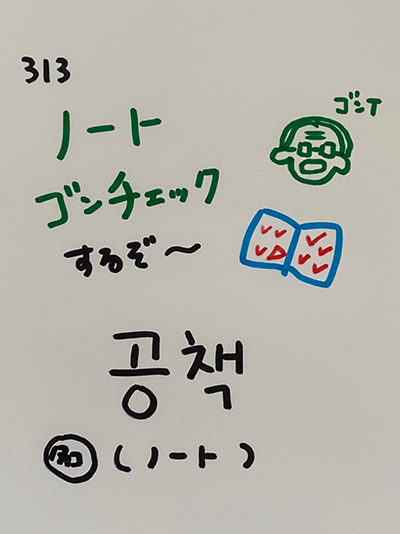 313
ノート
ゴンT
ゴンチェック
するぞ〜
공책
(ノート)